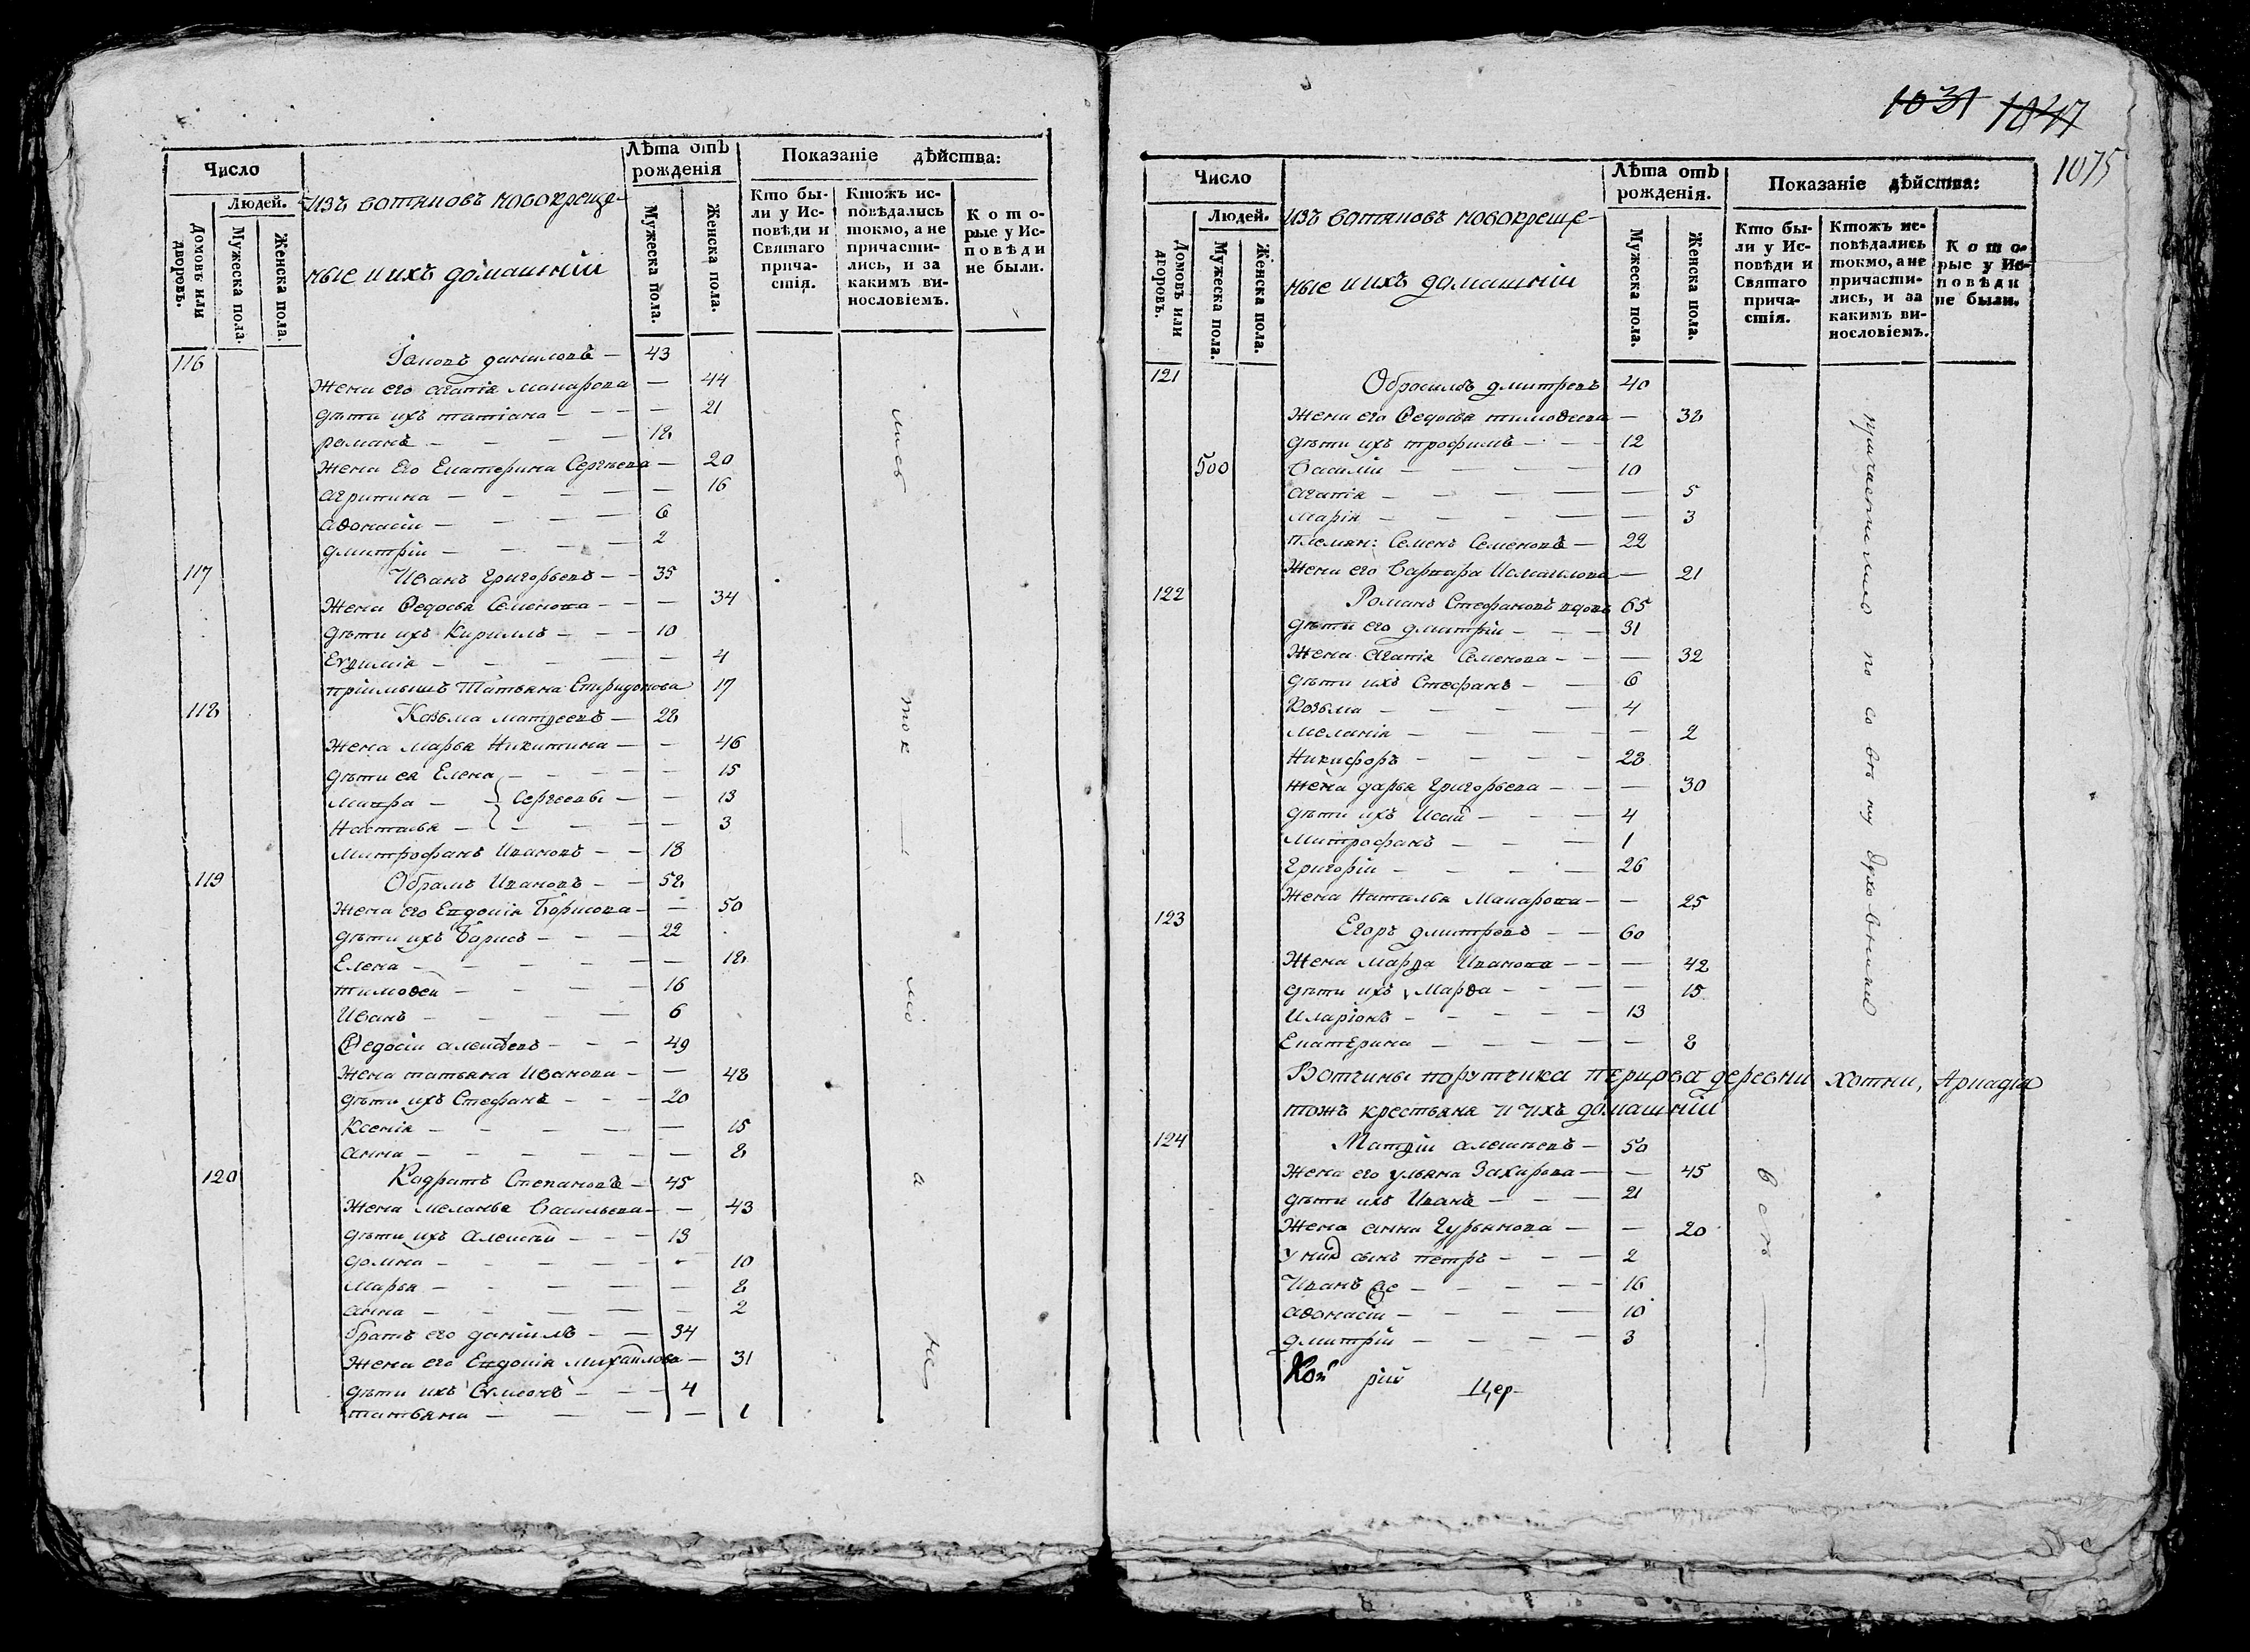 Число
Людей.
Домовъ или дворовъ.
Мужеска пола.
Женска пола.
Изъ вотяковъ новокреще-
ные и ихъ домашніи
Лѣта отъ рожденія
Мужеска пола.
Женска пола.
Показаніе дѣйства:
Кто бы-
ли у Ис-
повѣди и
Святаго
прича-
стія.
Ктожъ ис-
повѣдались
токмо, а не
причасти-
лись, и за
какимъ ви-
нословіемъ.
Кото-
рые у Ис-
повѣди
не были.
116 Іаковъ даниловъ — 43
Жена его агапіа макарова — 44
дѣти ихъ татіана — 21
романъ — 18
Жена Его Екатерина Сергѣева — 20
агрипина — 16
аѳонасіи — 6
дмитріи — 2
117 Иванъ Григорьевъ — 35
Жена Ѳедосья Семенова — 34
дѣти ихъ Кириллъ — 10
Евѳимія — 4
пріимышъ Татьяна Спиридонова 17
118 Козьма матвеевъ — 28
Жена марья Никитина — 46
дѣти ея Елена — 15
мавра — Сергеевы — 13
Наталья — 3
Митрофанъ Ивановъ — 18
119 Обрамъ Ивановъ — 58
Жена его Евдокія Борисова — 50
дѣти ихъ Борисъ — 22
Елена — 18
тимоѳеи — 16
Иванъ — 6
Ѳедосіи алексѣевъ — 49
Жена татьяна Иванова — 48
дѣти ихъ Стефанъ — 20
Ксенія — 15
анна — 8
120 Кадратъ Степановъ — 45
Жена меланья Васильева — 43
дѣти ихъ алексѣи — 13
домна — 10
марья — 8
анна — 2
братъ его даніилъ — 34
Жена его Евдокія михаилова — 31
дѣти ихъ Симеонъ — 4
татьяна — 1
лись
ток
мо
а
не
1031 1047
1075
Число
Людей.
Домовъ или дворовъ.
Мужеска пола.
Женска пола.
Изъ вотяковъ новокреще-
ные и ихъ домашніи
Лѣта отъ рожденія.
Мужеска пола.
Женска пола.
Показаніе дѣйства:
Кто бы-
ли у Ис-
повѣди и
Святаго
прича-
стія.
Ктожъ ис-
повѣдались
токмо, а не
причасти-
лись, и за
какимъ ви-
нословіемъ.
Кото-
рые у Ис-
повѣди
не были.
121 Обросимъ дмитревъ 40
Жена его Ѳедосья тимоѳеева — 38
дѣти ихъ трофимъ — 12
500 Василіи — 10
агапія — 5
марія — 3
племян: Семенъ Семеновъ — 22
Жена его Варвара Исмаилова — 21
122 Романъ Стефановъ вдовъ 65
дѣти его дмитріи — 31
Жена агапія Семенова — 32
дѣти ихъ Стефанъ — 6
Козьма — 4
меланія — 2
Никифоръ — 28
жена дарья Григорьева — 30
дѣти ихъ Исаи — 4
митрофанъ — 1
Григоріи — 26
Жена Наталья Макарова — 25
123 Егоръ дмитревъ — 60
Жена марѳа Иванова — 42
дѣти ихъ Марѳа — 15
Иларіонъ — 13
Екатерина — 8
Вотчины порутчика перцова деревни хотни, Аркадіа
тожъ крестьяна и ихъ домашніи
124 Матѳіи алексѣевъ — 50
Жена его ульяна Захарова — 45
дѣти ихъ Иванъ — 21
Жена анна Гурьянова — 20
у них сынъ петръ — 2
Иванъ же — 16
аѳонасіи — 10
дмитріи — 3
рій Цер-
причастились по со вѣ ту духовника
всѣ